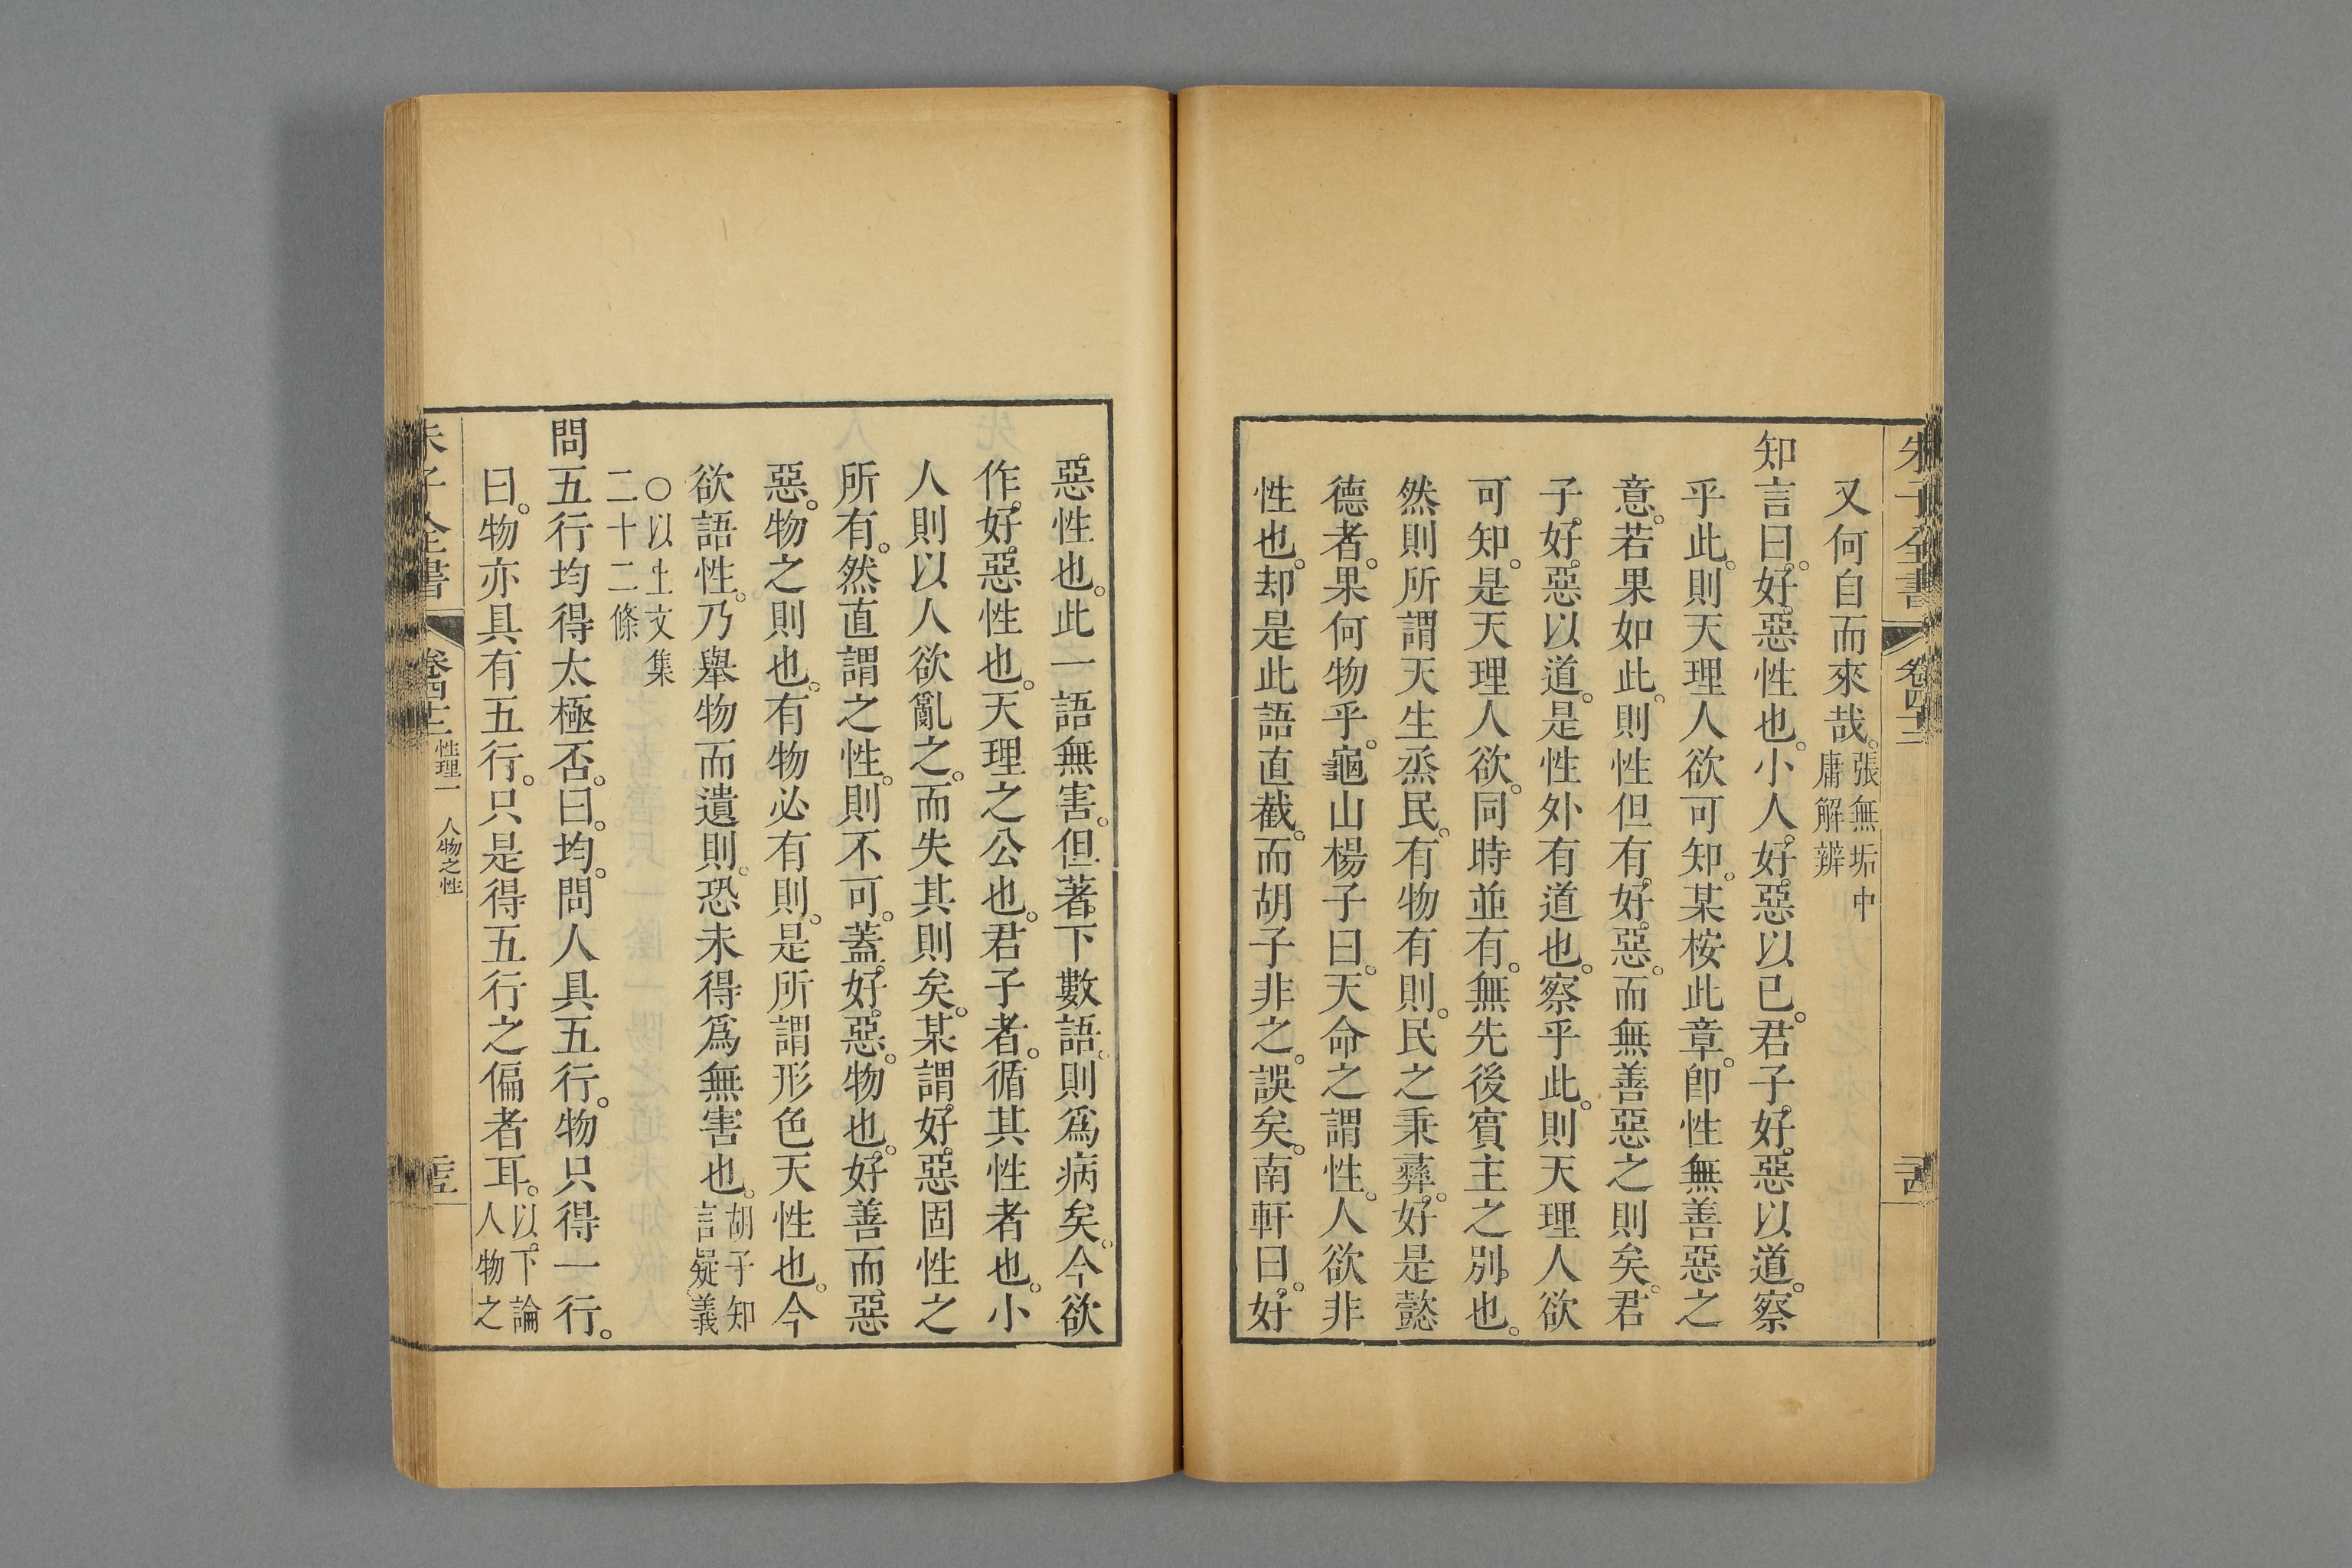 朱子全書
卷四十二
二十四
又何自而來哉。張無垢中
庸解辨
知言曰。好惡性也。小人好惡以已。君子好惡以道。察
乎此。則天理人欲可知。某桉此章。卽性無善惡之
意。若果如此。則性但有好惡。而無善惡之則矣。君
子好惡以道。是性外有道也。察乎此。則天理人欲
可知。是天理人欲。同時並有。無先後賓主之別也。
然則所謂天生烝民。有物有則。民之秉彞。好是懿
德者。果何物乎。龜山楊子曰。天命之謂性。人欲非
性也。却是此語直截。而胡子非之。誤矣。南軒曰。好
惡性也。此一語無害。但著下數語。則爲病矣。今欲
作。好惡性也。天理之公也。君子者。循其性者也。小
人則以人欲亂之。而失其則矣。某謂。好惡固性之
所有。然直謂之性。則不可。蓋好惡。物也。好善而惡
惡。物之則也。有物必有則。是所謂形色天性也。今
欲語性。乃舉物而遺則。恐未得爲無害也。胡子知
言疑義
○以上文集
二十二條
問五行均得太極否。曰。均。問人具五行。物只得一行。
曰。物亦具有五行。只是得五行之偏者耳。以下論
人物之
朱子全書
卷四十二
性理一
人物之性
二十五